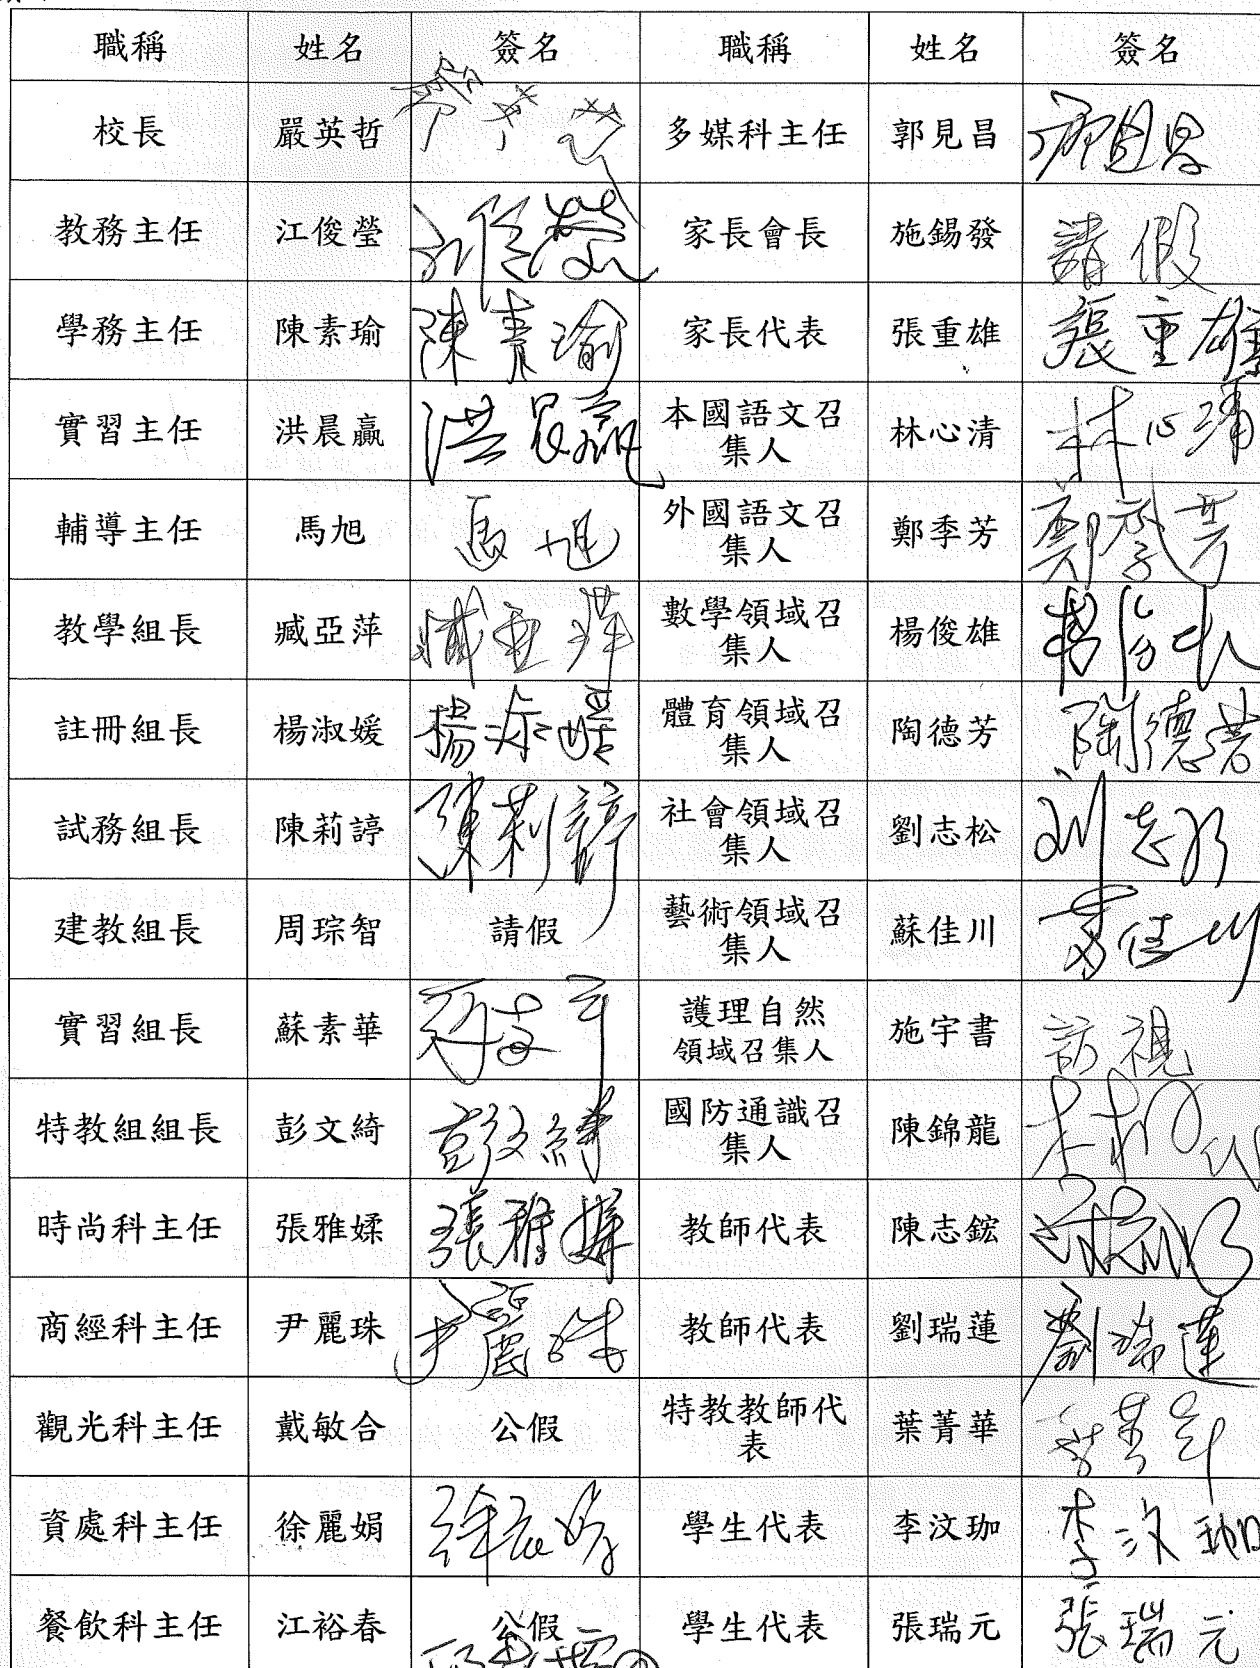 職稱 姓名 簽名 職稱 姓名 簽名
校長 嚴英哲 多媒科主任 郭見昌
教務主任 江俊瑩 江俊瑩 家長會長 施錫發 請假
學務主任 陳素瑜 陳素瑜 家長代表 張重雄 張重雄
實習主任 洪晨贏 洪晨贏 本國語文召 林心清 林心清
集人
輔導主任 馬旭 馬旭 外國語文召 鄭季芳 鄭季芳
集人
教學組長 臧亞萍 臧亞萍 數學領域召 楊俊雄
集人
註冊組長 楊淑媛 楊淑媛 體育領域召 陶德芳 陶德芳
集人
試務組長 陳莉諄 陳莉諄 社會領域召 劉志松 刘志松
集人
建教組長 周琮智 請假 藝術領域召 蘇佳川
集人
實習組長 蘇素華 護理自然 施宇書 訪視
領域召集人
特教組組長 彭文綺 彭文綺 國防通識召 陳錦龍
集人
時尚科主任 張雅媃 張雅媃 教師代表 陳志鋐
商經科主任 尹麗珠 尹麗珠 教師代表 劉瑞蓮 劉瑞蓮
觀光科主任 戴敏合 公假 特教教師代 葉菁華
表
資處科主任 徐麗娟 學生代表 李汶珈 李汶珈
餐飲科主任 江裕春 公假 學生代表 張瑞元 張瑞元